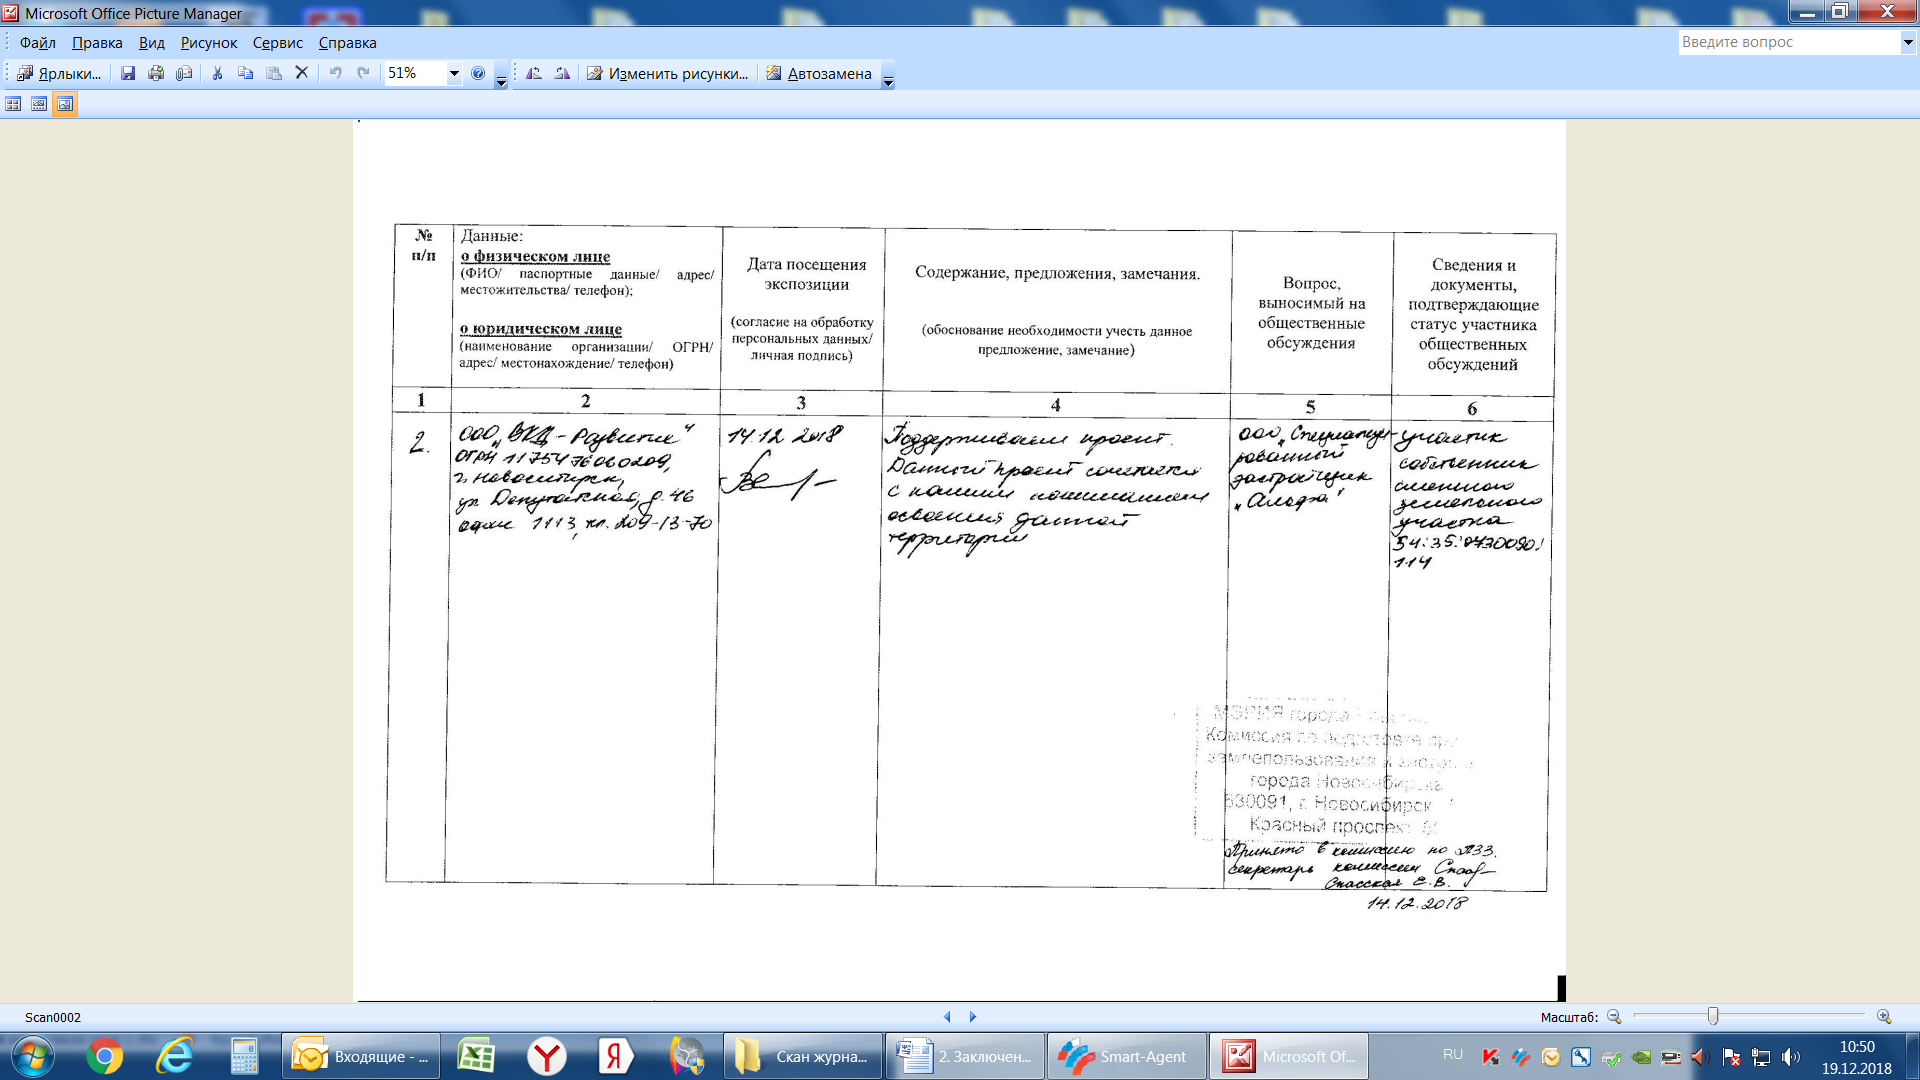 Microsoft Office Picture Manager
Файл Правка Вид Рисунок Сервис Справка
Введите вопрос
Ярлыки... 51% Изменить рисунки... Автозамена
№
п/п
Данные:
о физическом лице
(ФИО/ паспортные данные/ адрес/
местожительства/ телефон);
о юридическом лице
(наименование организации/ ОГРН/
адрес/ местонахождение/ телефон)
Дата посещения
экспозиции
(согласие на обработку
персональных данных/
личная подпись)
Содержание, предложения, замечания.
(обоснование необходимости учесть данное
предложение, замечание)
Вопрос,
выносимый на
общественные
обсуждения
Сведения и
документы,
подтверждающие
статус участника
общественных
обсуждений
1 2 3 4 5 6
2.
ООО „ВКД-Развитие"
ОГРН 1175476060209,
г. Новосибирск,
ул. Депутатская, д. 46
офис 1113, 209-13-70
14.12 2018
Поддерживаем проект.
Данный проект сочетается
с нашими
освоения данной
территории
ООО „Специализи-
рованный
застройщик
„Альфа"
участник
собственник
смежного
земельного
участка
54:35:
114
МЭРИЯ города
Комиссия по подготовке
землепользования и
города Новосибирска
630091, г. Новосибирск
Красный проспект
Принято в комиссию по ПЗЗ.
секретарь комиссии
Спасская Е.В.
14.12.2018
Scan0002
Масштаб:
Входящие - ...
Скан журна...
2. Заключен...
Smart-Agent
Microsoft Of...
RU
10:50
19.12.2018